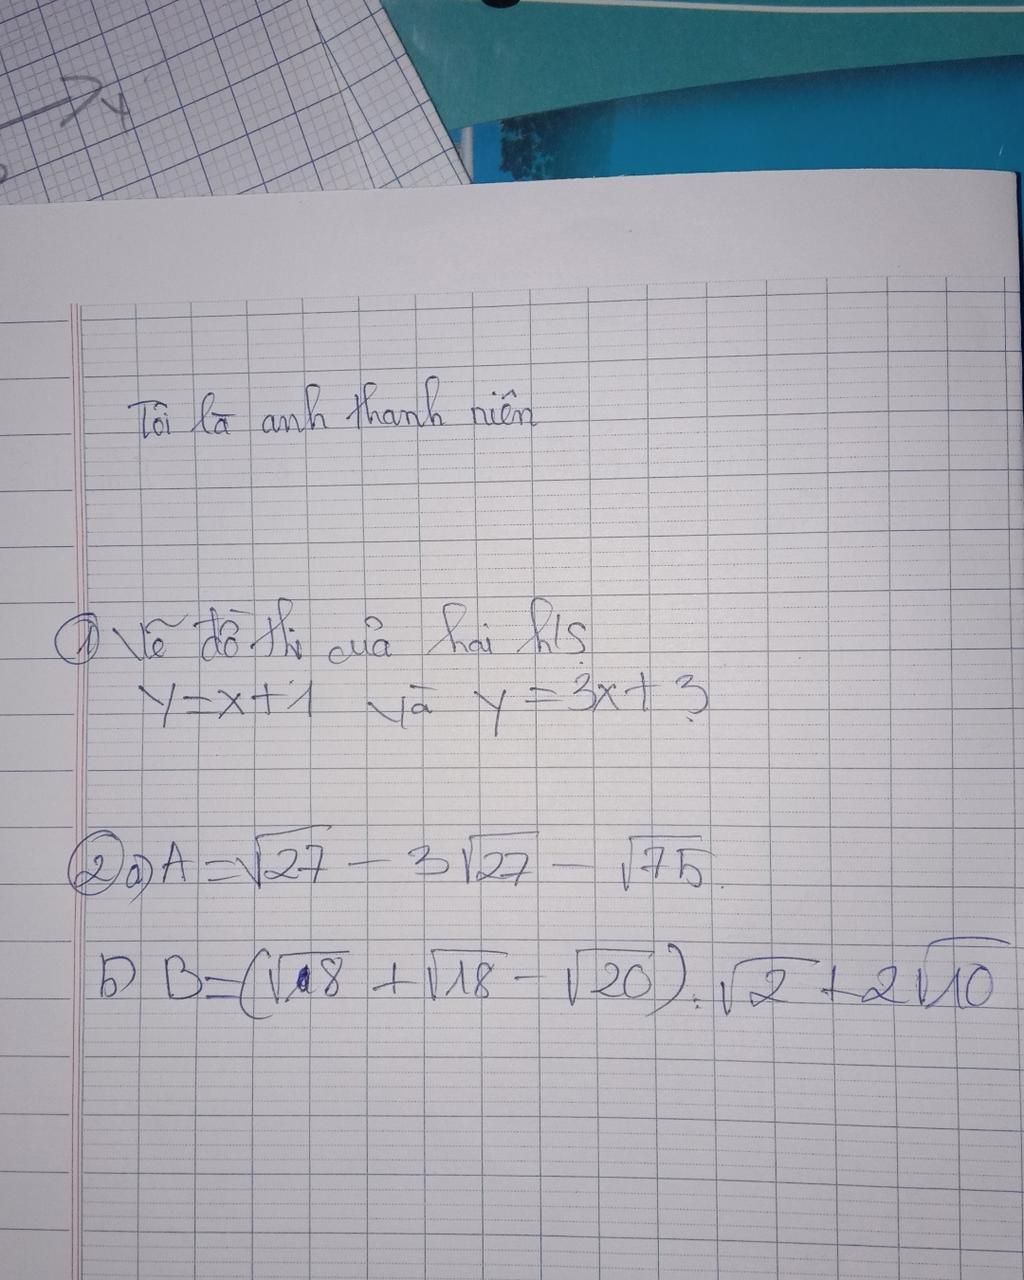 y
Tôi là anh thanh niên
① Vẽ đồ thị của hai h/s
y=x+1 và y=3x+3
② a) A=√27 - 3√27 - √75
b) B=(√18 + √18 - √20).√2 + 2√10